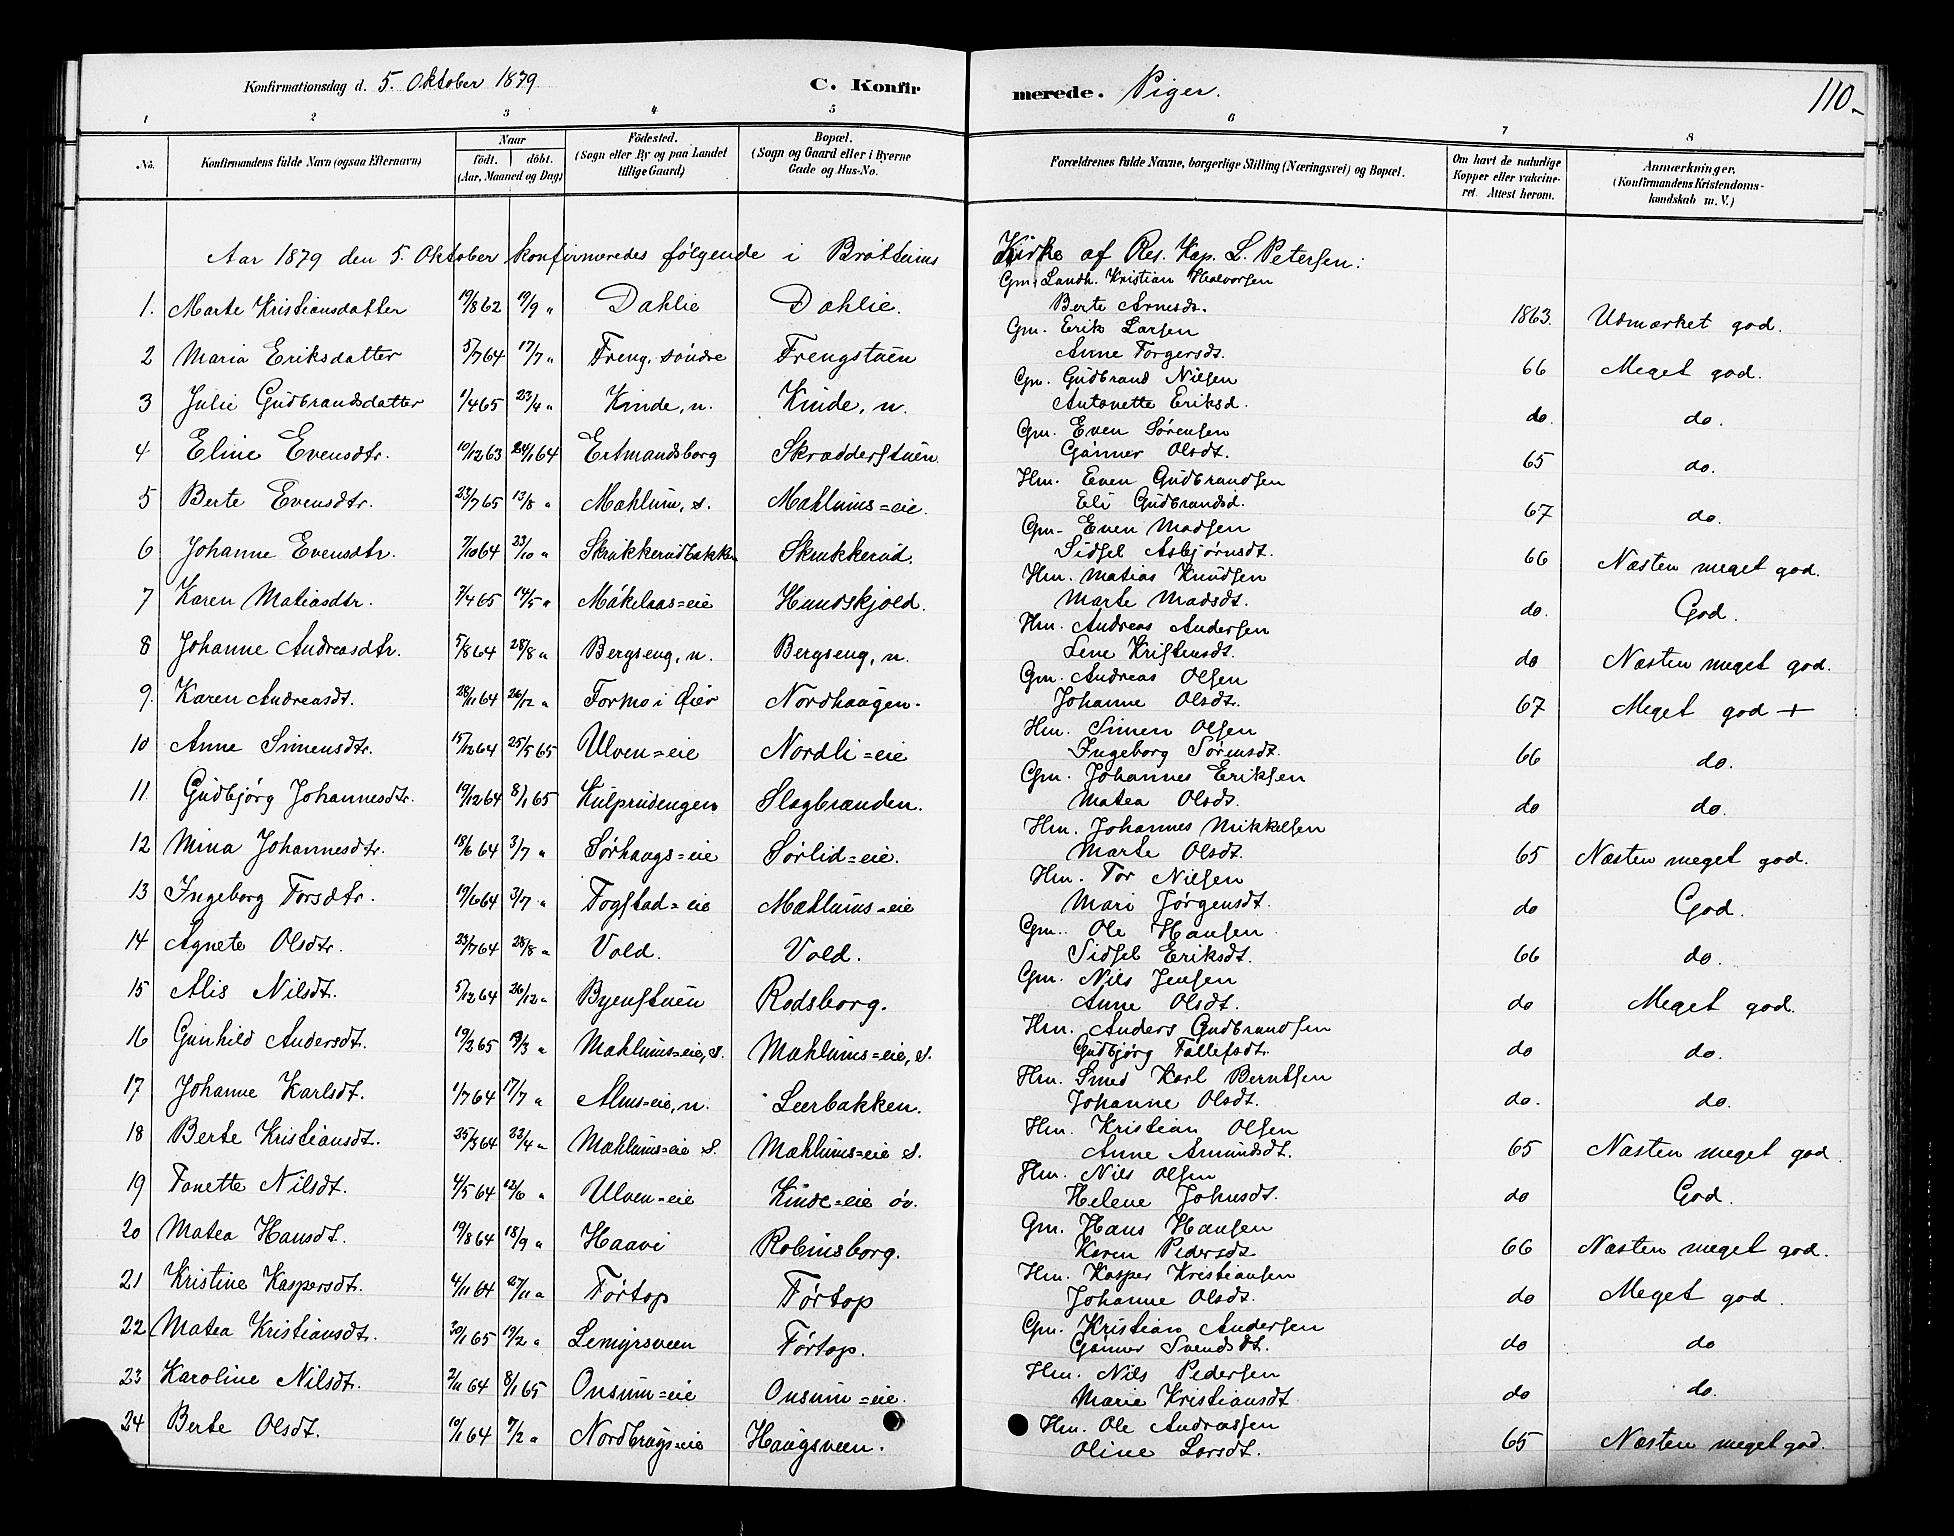 Konfirmationsdag d. 5. Oktober 1879. C. Konfirmerede. Piger. 110
1 2 3 4 5 6 7 8
No. Konfirmandens fulde Navn (ogsaa Efternavn) Naar födt. döbt. (Aar, Maaned og Dag) Födested. (Sogn eller By og paa Landet tillige Gaard) Bopæl. (Sogn og Gaard eller i Byerne Gade og Hus-No. Forældrenes fulde Navne, borgerlige Stilling (Næringsvei) og Bopæl. Om havt de naturlige Kopper eller vakcineret. Attest herom. Anmærkninger. (Konfirmandens Kristendomskundskab m. V.)
Aar 1879 den 5. Oktober konfirmeredes følgende i Brøttums Kirke af Res. Kap. L. Petersen:
1. Marte Kristiansdatter 19/8 62 19/9 " Dahlie Dahlie. Gm. Landh. Kristian Halvorsen Berte Arnesdt. 1863. Udmærket god.
2 Maria Eriksdatter 5/7 64 17/7 " Freng, söndre Frengstuen Gm. Erik Larsen Anne Torgersdt. 66 Meget god.
3 Julie Gudbrandsdatter 1/4 65 23/4 " Kinde, n. Kinde, n. Gm. Gudbrand Nilsen Antonette Eriksd. do do.
4 Eline Evensdtr. 10/12 63 24/1 64 Ertmandsborg Skrædderstuen. Gm. Even Sørensen Gunner Olsdt. 65 do.
5 Berte Evensdtr. 23/7 65 13/8 " Mæhlum, s. Mæhlums=eie. Hm. Even Gudbrandsen Eli Gudbrandsd. 67 do.
6 Johanne Evensdtr. 7/10 64 23/10 " Skrukkerudbakken Skrukkerud. Gm. Even Madsen Sidsel Asbjørnsdt. 66 Næsten meget god.
7 Karen Matiasdtr. 7/4 65 14/5 " Mökelaas=eie Hundskjold. Hm. Matias Knudsen Marte Madsdt. do. God.
8 Johanne Andreasdtr. 5/8 64 28/8 " Bergseng, n. Bergseng, n. Hm. Andreas Andersen Lene Kristensdt. do Næsten meget god.
9. Karen Andreasdt. 28/11 64 26/12 " Formo i Øier Nordhaugen. Gm. Andreas Olsen Johanne Olsdt. 67 Meget god +
10 Anne Simensdtr. 15/12 64 25/5 65 Ulven=eie Nordli=eie Hm. Simen Olsen Ingeborg Sørensdt. 66 do.
11 Gudbjørg Johannesdtr. 19/12 64 8/1 65 Kulprudengen Slagbrænden. Gm. Johannes Eriksen Matea Olsdt. do do.
12 Mina Johannesdtr. 18/6 64 3/7 " Sørhaugs=eie Sørlid=eie. Hm. Johannes Mikkelsen Marte Olsdt. 65 Næsten meget god.
13 Ingeborg Torsdtr. 19/6 64 3/7 " Fogstad=eie Mæhlums=eie Hm. Tor Nilsen Mari Jørgensdt. do God.
14 Agnete Olsdtr. 23/7 64 28/8 " Vold. Vold. Gm. Ole Hansen Sidsel Eriksdt. 66 do.
15 Alis Nilsdt. 5/12 64 26/12 " Byenstuen Rodsborg. Gm. Nils Jensen Anne Olsdt. do Meget god.
16 Gunhild Andersdt. 19/2 65 19/3 " Mæhlums=eie, s. Mæhlums=eie, s. Hm. Anders Gudbrandsen Gudbjørg Tollefsdt. do do.
17 Johanne Karlsdt. 1/7 64 17/7 " Alms=eie, n. Leerbakken. Hm. Smed Karl Berntsen Johanne Olsdt. do. do.
18 Berte Kristiansdt. 25/3 64 23/4 " Mæhlums=eie s. Mæhlums=eie s. Hm. Kristian Olsen Anne Amundsdt. 65 Næsten meget god.
19 Tonette Nilsdt. 4/5 64 12/6 " Ulven=eie Kinde=eie øv. Hm. Nils Olsen Helene Johnsdt. do God.
20 Matea Hansdt. 19/8 64 18/9 " Haavi Robinsborg. Gm. Hans Hansen Karen Pedersdt. 66 Næsten meget god.
21 Kristine Kaspersdt. 4/11 64 27/11 " Førtop Førtop Hm. Kasper Kristiansen Johanne Olsdt. do Meget god.
22 Matea Kristiansdt. 30/1 65 19/2 " Lemyrsveen Førtop. Gm. Kristian Andersen Gunner Svendsdt. do do
23 Karoline Nilsdt. 2/11 64 8/1 65 Onsum=eie Onsum=eie. Hm. Nils Pedersen Marie Kristiansdt do do.
24 Berte Olsdt. 10/1 64 7/2 " Nordbrugs=eie Haugsveen. Hm. Ole Andreassen Oline Larsdt. 65 Næsten meget god.